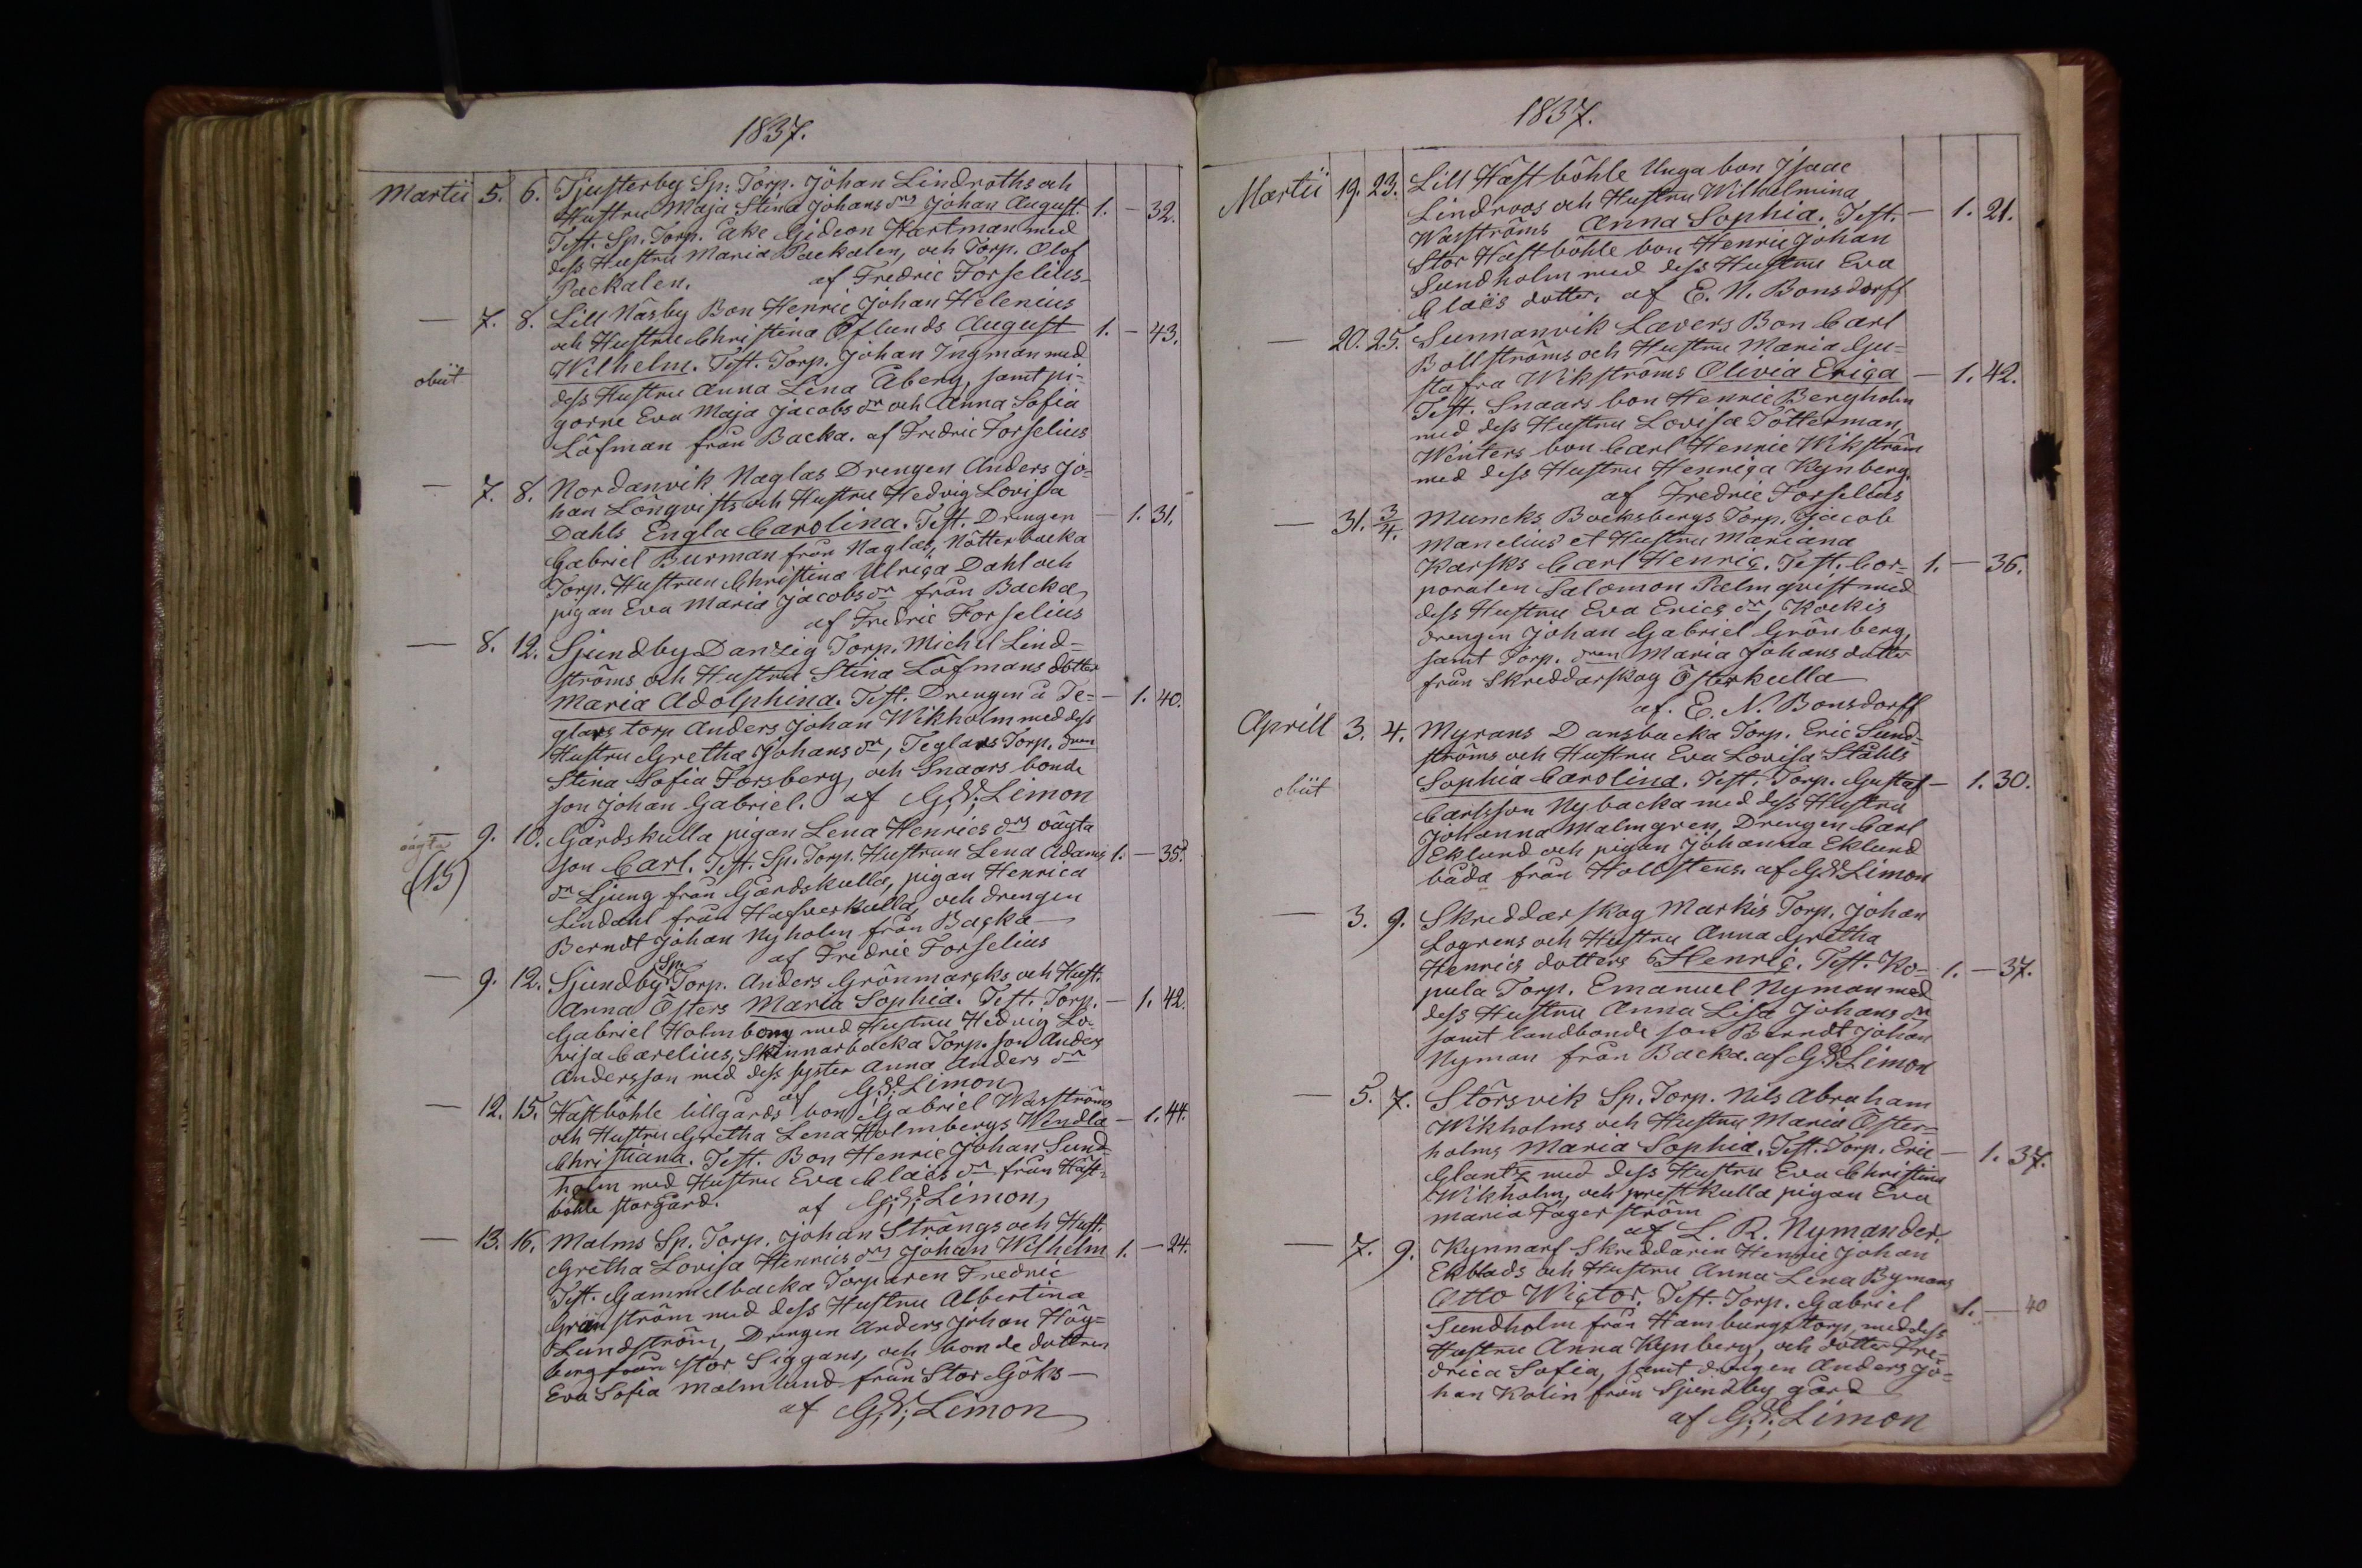 1837.
Martii 5. 6. Tjusterby Sp. Torp. Johan Lindroths och
Hustru Maja Stina Johans drs Johan August 1. — 32.
Test. Sp. Torp. Åke Gideon Hartman med
dess Hustru Maria Packalen, och Torp. Olof
Packalen. af Fredric Forselius
— 7. 8. Lill Näsby Bon Henric Johan Helenius
och Hustru Christina Öflunds August 1. — 43.
Wilhelm. Test. Torp. Johan Ingman med
obiit dess Hustru Anna Lena Åberg, samt pi-
gorne Eva Maja Jacobs dr och Anna Sofia
Löfman från Backa. af Fredric Forselius
— 7. 8. Nordanvik Naglas Drengen Anders Jo-
han Lönqvists och Hustru Hedvig Lovisa
Dahls Engla Carolina. Test. Drengen — 1. 31.
Gabriel Burman från Naglas, Nötterbacka
Torp. Hustrun Christina Ulrica Dahl och
pigan Eva Maria Jacobs dr från Backa
af Fredric Forselius
— 8. 12. Sjundby Danzig Torp. Michel Lind-
ströms och Hustru Stina Löfmans dotter
Maria Adolphina. Test. Drengen å Te- — 1. 40.
glars torp Anders Johan Wikholm med dess
Hustru Gretha Johans dr, Teglars Torp. dren
Stina Sofia Forsberg, och Snaars bonde
son Johan Gabriel. af G. W. Limon
oägta — 9. 10. Gårdskulla pigan Lena Henrics drs oägta
(15) son Carl. Test. Sp. Torp. Hustrun Lena Adams 1. — 35.
dr Ljung från Gårdskulla, pigan Henrica
Lindahl från Hafverkulla, och drengen
Berndt Johan Nyholm från Backa
af Fredric Forselius
— 9. 12. Sjundby Sp. Torp. Anders Grönmarcks och Hust.
Anna Östers Maria Sophia. Test. Torp. — 1. 42.
Gabriel Holmberg med Hustru Hedvig Lo-
visa Carelius, Skinnarbacka Torp. son Anders
Andersson med dess syster Anna Anders dr
af G. W. Limon
— 12. 15. Hästböhle lillgårds bon Gabriel Wasströms
och Hustru Gretha Lena Holmbergs Wendla — 1. 44.
Christiana. Test. Bon Henric Johan Sund-
holm med Hustru Eva Claës dr från Häst-
böhle storgård. af G. W. Limon
— 13. 16. Malms Sp. Torp. Johan Strängs och Hust.
Gretha Lovisa Henrics drs Johan Wilhelm 1. — 24.
Test. Gammelbacka Torparen Fredric
Granström med dess Hustru Albertina
Lundström, Drengen Anders Johan Hög-
berg från stor Siggans, och bonde dottren
Eva Sofia Malmlund från Stor Göks —
af G. W. Limon
1837.
Martii 19. 23. Lill Hästböhle Unga bon Isaac
Lindroos och Hustru Wilhelmina
Wasströms Anna Sophia. Test. — 1. 21.
Stor Hästböhle bon Henric Johan
Sundholm med dess Hustru Eva
Claës dotter. af E. N. Bonsdorff
— 20. 25. Sunnanvik Lavers Bon Carl
Bollströms och Hustru Maria Gu-
stafva Wikströms Olivia Erica — 1. 42.
Test. Snaars bon Henric Bergholm
med dess Hustru Lovisa Tötterman,
Winters bon Carl Henric Wikström
med dess Hustru Henrica Kynberg.
af Fredric Forselius
— 31. 3/4. Muncks Bocksbergs Torp. Jacob
Manelius et Hustru Mariana
Karsks Carl Henric. Test. Cor- 1. — 36.
poralen Salomon Palmqvist med
dess Hustru Eva Erics dr, Kockis
drengen Johan Gabriel Grönberg,
samt Torp. dren Maria Johans dotter
från Skreddarskog Österkulla
af. E. N. Bonsdorff
Aprill 3. 4. Myrans Dansbacka Torp. Eric Sund-
ströms och Hustru Eva Lovisa Ståhls
obiit Sophia Carolina. Test. Torp. Gustaf — 1. 30.
Carlsson Nybacka med dess Hustru
Johanna Malmgren, Drengen Carl
Eklund och pigan Johanna Eklund
båda från Hollstens. af G. W. Limon
— 3. 9. Skreddarskog Markis Torp. Johan
Logrens och Hustru Anna Gretha
Henrics dotters Henric. Test. Ko- 1. — 37.
pula Torp. Emanuel Nyman med
dess Hustru Anna Lisa Johans dr
samt landbonde son Berndt Johan
Nyman från Backa. af G. W. Limon
— 5. 7. Störsvik Sp. Torp. Nils Abraham
Wikholms och Hustru Maria Öster-
holms Maria Sophia. Test. Torp. Eric — 1. 37.
Glantz med dess Hustru Eva Christina
Wikholm, och prestkulla pigan Eva
Maria Fagerström
af L. R. Nymander.
— 7. 9. Kynnarf Skreddaren Henric Johan
Ekblads och Hustru Anna Lena Bymans
Otto Wictor. Test. Torp. Gabriel 1. — 40
Sundholm från Hamburgs torp, med dess
Hustru Anna Kynberg, och dotter Fre-
drica Sofia, samt drengen Anders Jo-
han Kolin från Sjundby gård
af G. W. Limon